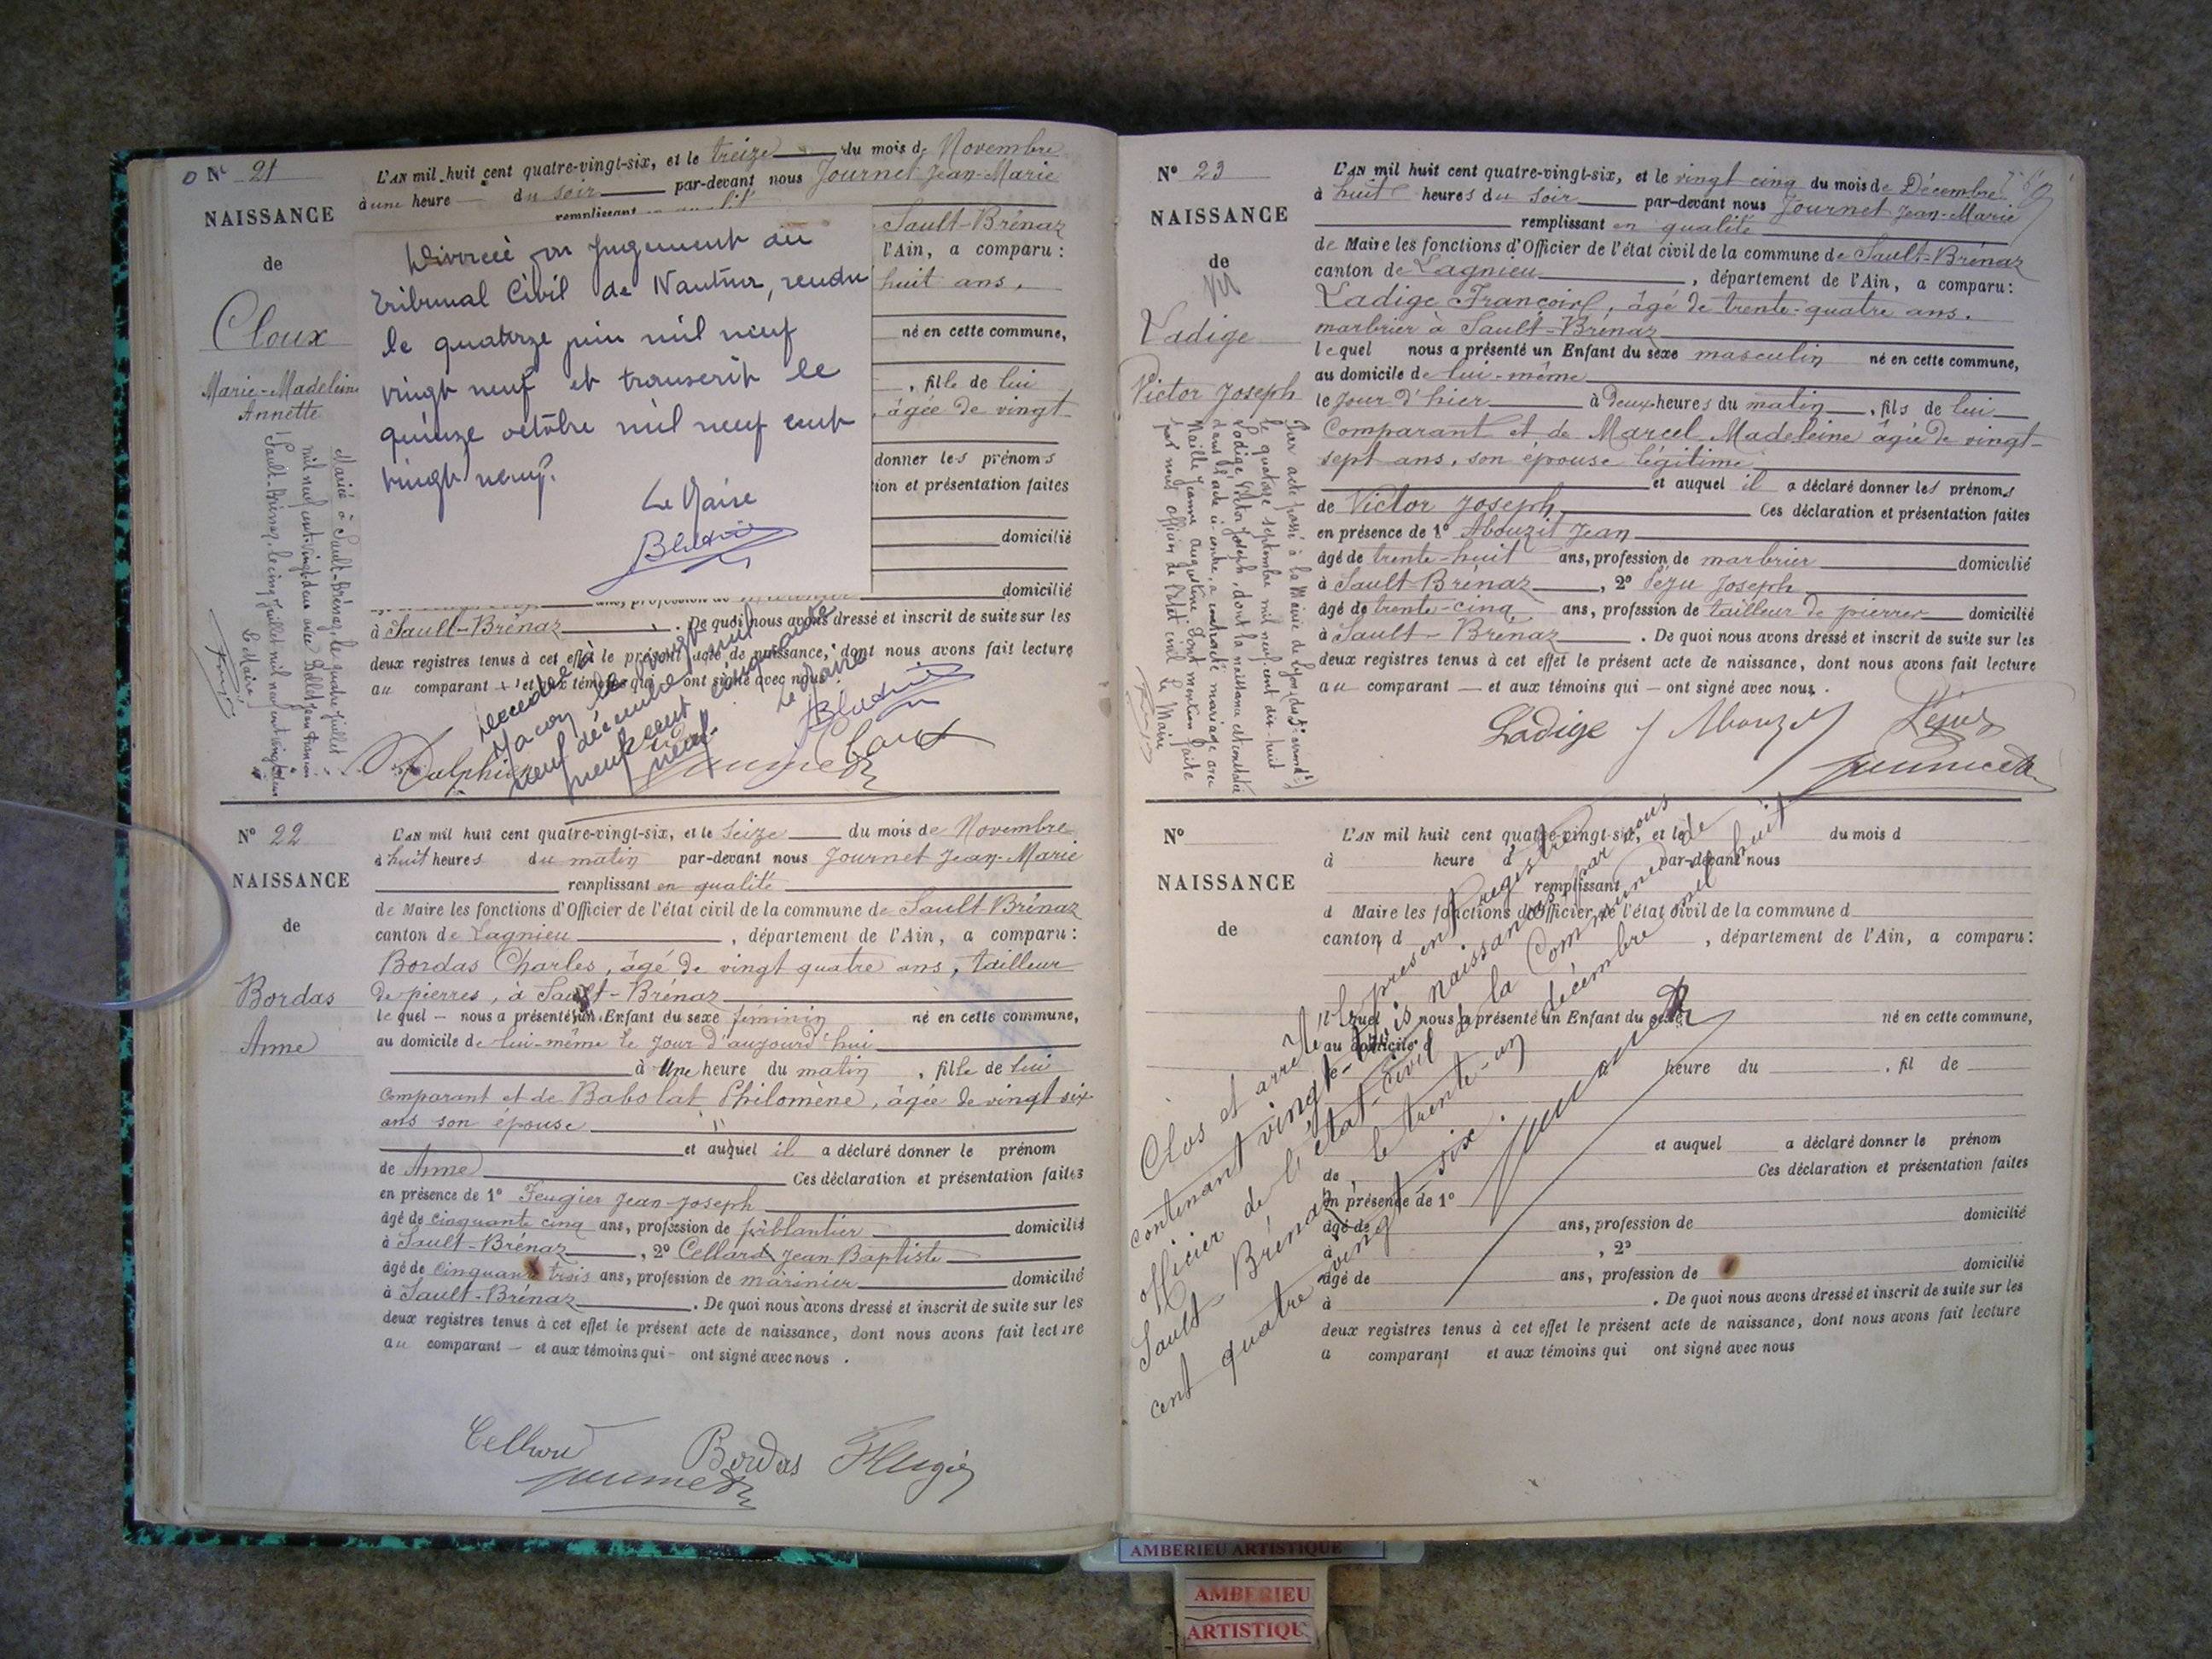 N° 21
NAISSANCE
de
Cloux
Marie-Madeleine
Annette
Mariée à Sault-Brénaz, le quatre juillet
mil neuf cent vingt-deux avec Jean François
Sault-Brénaz, le cinq juillet mil neuf cent vingt deux
Le Maire
L'AN mil huit cent quatre-vingt-six, et le treize du mois de Novembre
à une heure du soir par-devant nous Journet Jean-Marie
remplissant en qualité
Sault-Brénaz
l'Ain, a comparu :
huit ans,
né en cette commune,
, fille de lui
, âgée de vingt
donner les prénoms
tion et présentation faites
domicilié
domicilié
Divorcée par Jugement du
Tribunal Civil de Nantua, rendu
le quatorze juin mil neuf
vingt neuf et transcrit le
quinze octobre mil neuf cent
vingt neuf.
Le Maire
à Sault-Brénaz . De quoi nous avons dressé et inscrit de suite sur les
deux registres tenus à cet effet le présent acte de naissance, dont nous avons fait lecture
au comparant et aux témoins qui ont signé avec nous
Décédée à
Macon le vingt
neuf décembre mil
neuf cent cinquante
neuf
Le Maire
Dalphin
Journet
Cloux
N° 22
NAISSANCE
de
Bordas
Anne
L'AN mil huit cent quatre-vingt-six, et le seize du mois de Novembre
à huit heures du matin par-devant nous Journet Jean-Marie
remplissant en qualité
de Maire les fonctions d'Officier de l'état civil de la commune de Sault-Brénaz
canton de Lagnieu , département de l'Ain, a comparu :
Bordas Charles, âgé de vingt quatre ans, tailleur
de pierres, à Sault-Brénaz
lequel — nous a présenté un Enfant du sexe féminin né en cette commune,
au domicile de lui-même le jour d'aujourd'hui
à Une heure du matin , fille de lui
comparant et de Babolat Philomène, âgée de vingt six
ans son épouse
et auquel il a déclaré donner le prénom
de Anne Ces déclaration et présentation faites
en présence de 1° Feugier Jean-Joseph
âgé de cinquante cinq ans, profession de ferblantier domicilié
à Sault-Brénaz , 2° Cellard Jean-Baptiste
âgé de cinquante trois ans, profession de marinier domicilié
à Sault-Brénaz . De quoi nous avons dressé et inscrit de suite sur les
deux registres tenus à cet effet le présent acte de naissance, dont nous avons fait lecture
au comparant — et aux témoins qui — ont signé avec nous .
Cellard Bordas Feugier
Journet
N° 23
NAISSANCE
de
Ladige
Victor Joseph
Par acte passé à la Mairie de Lyon
le quatorze septembre mil neuf cent dix-huit
Ladige Victor Joseph, dont la naissance est constatée
dans l'acte ci-contre, a contracté mariage avec
Naille Jeanne Augustine Dont mention faite
par nous officier de l'état civil Le Maire
L'AN mil huit cent quatre-vingt-six, et le vingt cinq du mois de Décembre
à huit heures du soir par-devant nous Journet Jean-Marie
remplissant en qualité
de Maire les fonctions d'Officier de l'état civil de la commune de Sault-Brénaz
canton de Lagnieu , département de l'Ain, a comparu :
Ladige François, âgé de trente-quatre ans.
marbrier à Sault-Brénaz
lequel nous a présenté un Enfant du sexe masculin né en cette commune,
au domicile de lui-même
le jour d'hier à deux heures du matin , fils de lui
Comparant et de Marcel Madeleine âgée de vingt-
sept ans, son épouse légitime
et auquel il a déclaré donner les prénoms
de Victor Joseph. Ces déclaration et présentation faites
en présence de 1° Abouzit Jean
âgé de trente-huit ans, profession de marbrier domicilié
à Sault-Brénaz , 2° Pézu Joseph
âgé de trente-cinq ans, profession de tailleur de pierres domicilié
à Sault-Brénaz . De quoi nous avons dressé et inscrit de suite sur les
deux registres tenus à cet effet le présent acte de naissance, dont nous avons fait lecture
au comparant — et aux témoins qui — ont signé avec nous .
Ladige J Abouzit Pézu
Journet
N°
NAISSANCE
de
L'AN mil huit cent quatre-vingt-six, et le du mois d
à heure d par-devant nous
remplissant
d Maire les fonctions d'Officier de l'état civil de la commune d
canton d , département de l'Ain, a comparu :
lequel nous a présenté un Enfant du sexe né en cette commune,
au domicile d
heure du , fil de
et auquel a déclaré donner le prénom
de Ces déclaration et présentation faites
en présence de 1°
âgé de ans, profession de domicilié
à , 2°
âgé de ans, profession de domicilié
à . De quoi nous avons dressé et inscrit de suite sur les
deux registres tenus à cet effet le présent acte de naissance, dont nous avons fait lecture
a comparant et aux témoins qui ont signé avec nous
Clos et arrêté le présent registre
contenant vingt-trois naissances par nous
officier de l'état-civil de la Commune de
Sault-Brénaz le trente-un décembre mil huit
cent quatre vingt six.
Journet
AMBERIEU ARTISTIQUE
AMBERIEU
ARTISTIQUE